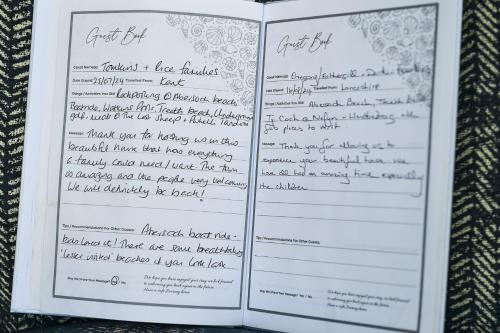 Guest Book
Guest Name(s): Tomkins + Rice families
Date Stayed: 25/07/24 Travelled From: Kent
Things / Activities You Did: Rockpooling @ Abersoch beach,
beach, Underground
golf, meal @ The Lost Sheep +
Message: Thank you for hosting us in this
beautiful home that has everything
a family could need/want. The town
is amazing and the people very welcoming
We will definitely be back!
Tips / Recommendations For Other Guests: Abersoch boat ride -
kids loved it! There are some breathtaking
'lesser visited' beaches if you look/ask
May We Share Your Message? Yes / No
We hope you have enjoyed your stay, we look forward
to welcoming you back again in the future.
Have a safe journey home.
Guest Book
Guest Name(s):
Date Stayed: Travelled From: Lancashire
Things / Activities You Did: Abersoch Beach,
places to visit
Message: Thank you for allowing us to
experience your beautiful home. We
have all had an amazing time especially
the children
Tips / Recommendations For Other Guests:
May We Share Your Message? Yes / No
We hope you have enjoyed your stay, we look forward
to welcoming you back again in the future.
Have a safe journey home.